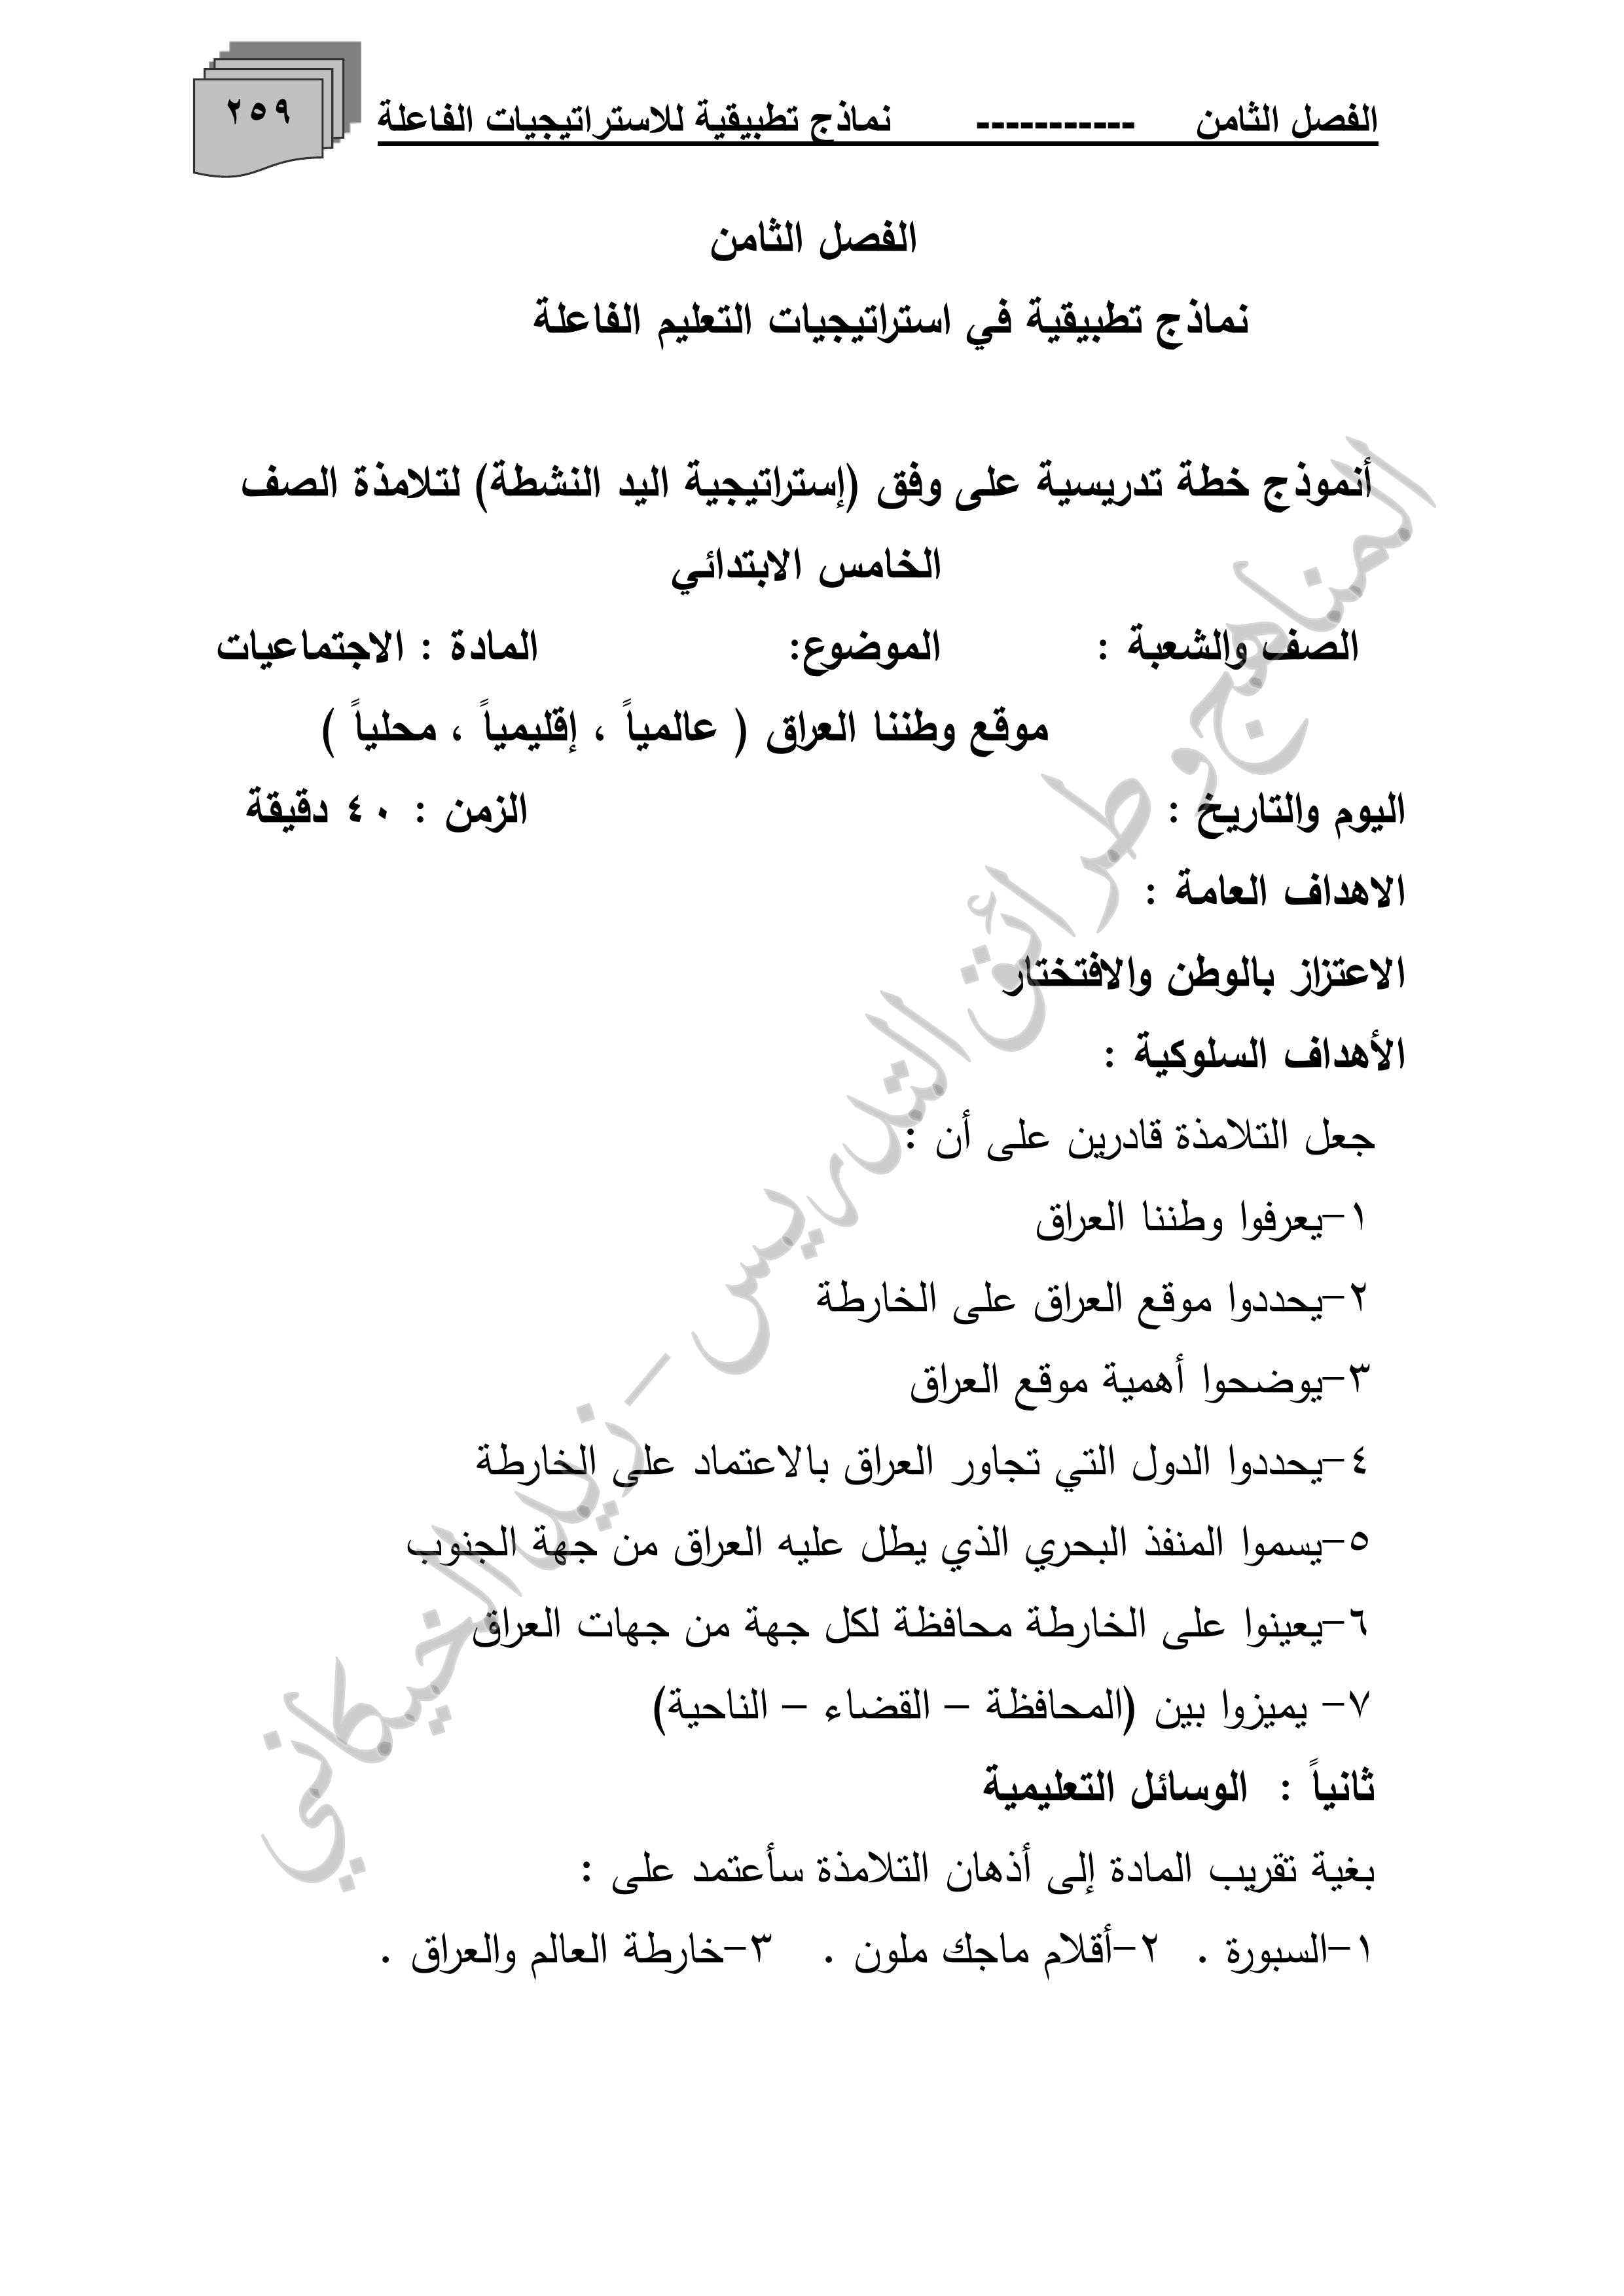 الفصل الثامن ----------- نماذج تطبيقية للاستراتيجيات الفاعلة
٢٥٩
الفصل الثامن
نماذج تطبيقية في استراتيجيات التعليم الفاعلة
أنموذج خطة تدريسية على وفق (إستراتيجية اليد النشطة) لتلامذة الصف
الخامس الابتدائي
الصف والشعبة : الموضوع: المادة : الاجتماعيات
موقع وطننا العراق ( عالمياً ، إقليمياً ، محلياً )
اليوم والتاريخ : الزمن : ٤٠ دقيقة
الاهداف العامة :
الاعتزاز بالوطن والافتختار
الأهداف السلوكية :
جعل التلامذة قادرين على أن :
١-يعرفوا وطننا العراق
٢-يحددوا موقع العراق على الخارطة
٣-يوضحوا أهمية موقع العراق
٤-يحددوا الدول التي تجاور العراق بالاعتماد على الخارطة
٥-يسموا المنفذ البحري الذي يطل عليه العراق من جهة الجنوب
٦-يعينوا على الخارطة محافظة لكل جهة من جهات العراق
٧- يميزوا بين (المحافظة – القضاء – الناحية)
ثانياً : الوسائل التعليمية
بغية تقريب المادة إلى أذهان التلامذة سأعتمد على :
١-السبورة . ٢-أقلام ماجك ملون . ٣-خارطة العالم والعراق .
المناهج وطرائق التدريس - زيد الخيكاني